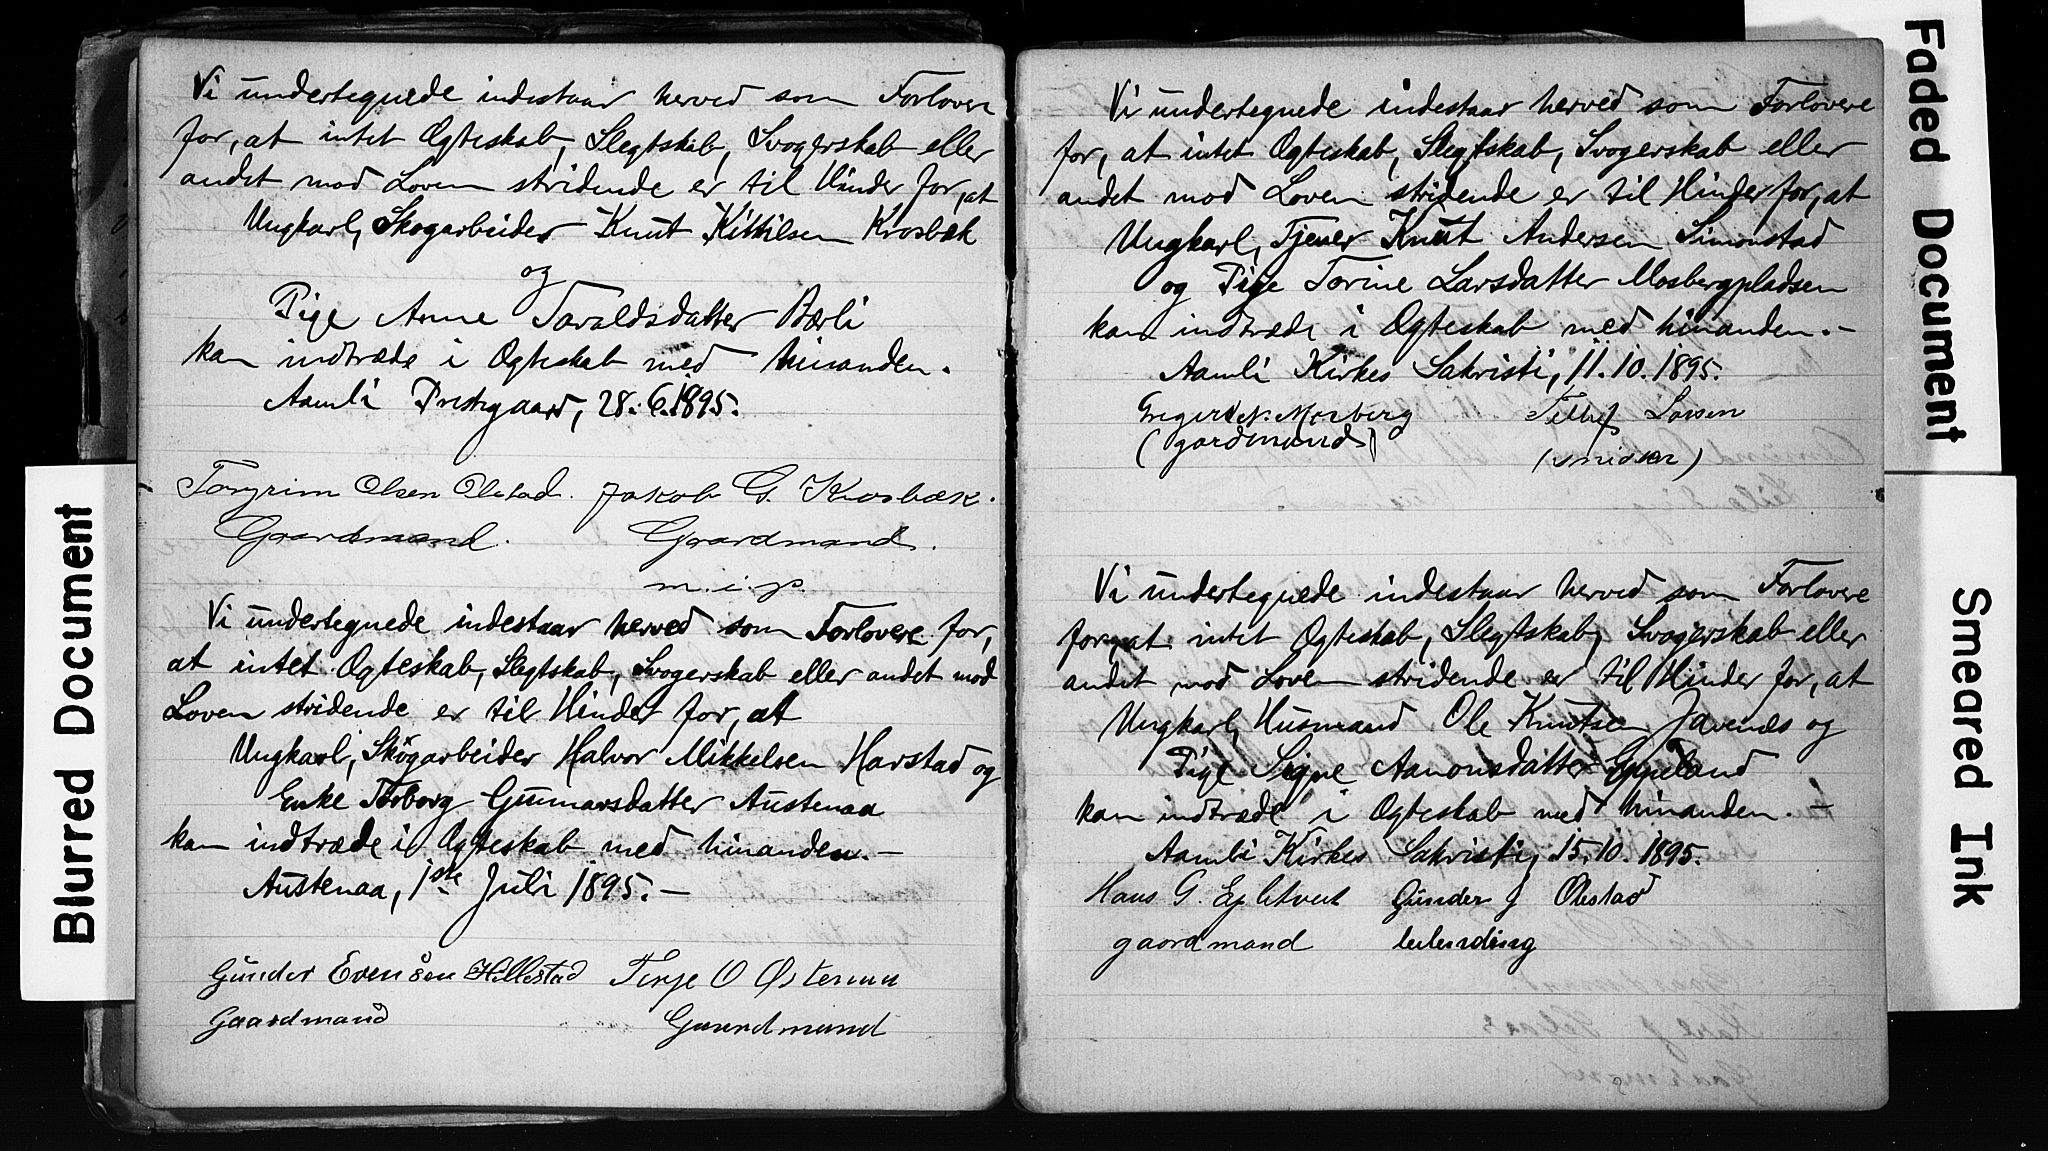 Vi undertegnede indestaar herved som Forlovere
for, at intet Ægteskab, Slegtskab, Svogerskab eller
andet mod Loven stridende er til Hinder for, at
Ungkarl, Skogarbeider Knut Kittilsen Krosbæk
og
Pige Anne Taraldsdatter Bærli
kan indtræde i Ægteskab med hinanden.
Aamli Prestegaard, 28.6.1895.
Torgrim Olsen Ølstad. Jakob G. Krosbæk.
Gaardmand. Gaardmand.
m.i.p.
Vi undertegnede indestaar herved som Forlovere for,
at intet Ægteskab, Slegtskab, Svogerskab eller andet mod
Loven stridende er til Hinder for, at
Ungkarl, Skogarbeider Halvor Mikkelsen Harstad og
Enke Torborg Gunnarsdatter Austenaa
kan indtræde i Ægteskab med hinanden.–
Austenaa, 1ste Juli 1895.–
Gunder Evensen Hillestad Terje O Østenaa
Gaardmand Gaardmand
Vi undertegnede indestaar herved som Forlovere
for, at intet Ægteskab, Slegtskab, Svogerskab eller
andet mod Loven stridende er til Hinder for, at
Ungkarl, Tjener Knut Andersen Simonstad
og Pige Torine Larsdatter Mosbergpladsen
kan indtræde i Ægteskab med hinanden.–
Aamli Kirkes Sakristi, 11.10.1895.
N. Mosberg Tellef Larsen
(gardmand)
Vi undertegnede indestaar herved som Forlovere
for, at intet Ægteskab, Slegtskab, Svogerskab eller
andet mod Loven stridende er til Hinder for, at
Ungkarl, Husmand Ole Knutsen Javenæs og
Pige Signe Aanonsdatter Eppeland
kan indtræde i Ægteskab med hinanden.–
Aamli Kirkes Sakristi, 15.10.1895.
Hans G. Eplitveit Gunder J Ølestad
gaardmand leilending
Blurred Document
Faded Document
Smeared Ink